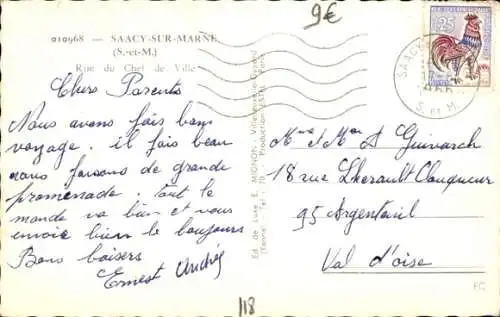 9€
010968 — SAACY-SUR-MARNE
(S.-et-M.)
Rue du Chef de Ville
Chers Parents
Nous avons fais bon
voyage. il fais beau
nous faisons de grande
promenade. tout le
monde va bien et vous
envoie bien le boujours
Bons baisers
Ernest Andrée
Ed. de Luxe E. MIGNON,
(Yonne) Tel. 79 Production ESTEL
25
SAACY
S. ET M.
Mme et Mr A Guinarch
18 rue Lherault Clouqueur
95 Argenteuil
Val d'oise
118